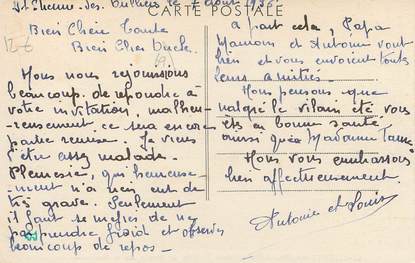 CARTE POSTALE
St Etienne des Oullières le 7 août 195
Bien Chère Tante
Bien Cher Oncle
Nous nous réjouissions
beaucoup de répondre à
votre invitation, malheu-
reusement ce sera encore
partie remise. Je viens
d'être assez malade.
Pleurésie, qui heureuse-
ment n'a rien eut de
très grave. Seulement
il faut se méfier de ne
pas prendre froid et observer
beaucoup de repos -
à part cela, Papa
Maman et Antonin vont
bien et vous envoient toutes
leurs amitiés -
Nous pensons que
malgré le vilain été vous
êtes en bonne santé
ainsi que Madame
Nous vous embrassons
bien affectueusement.
Antonin et Louis